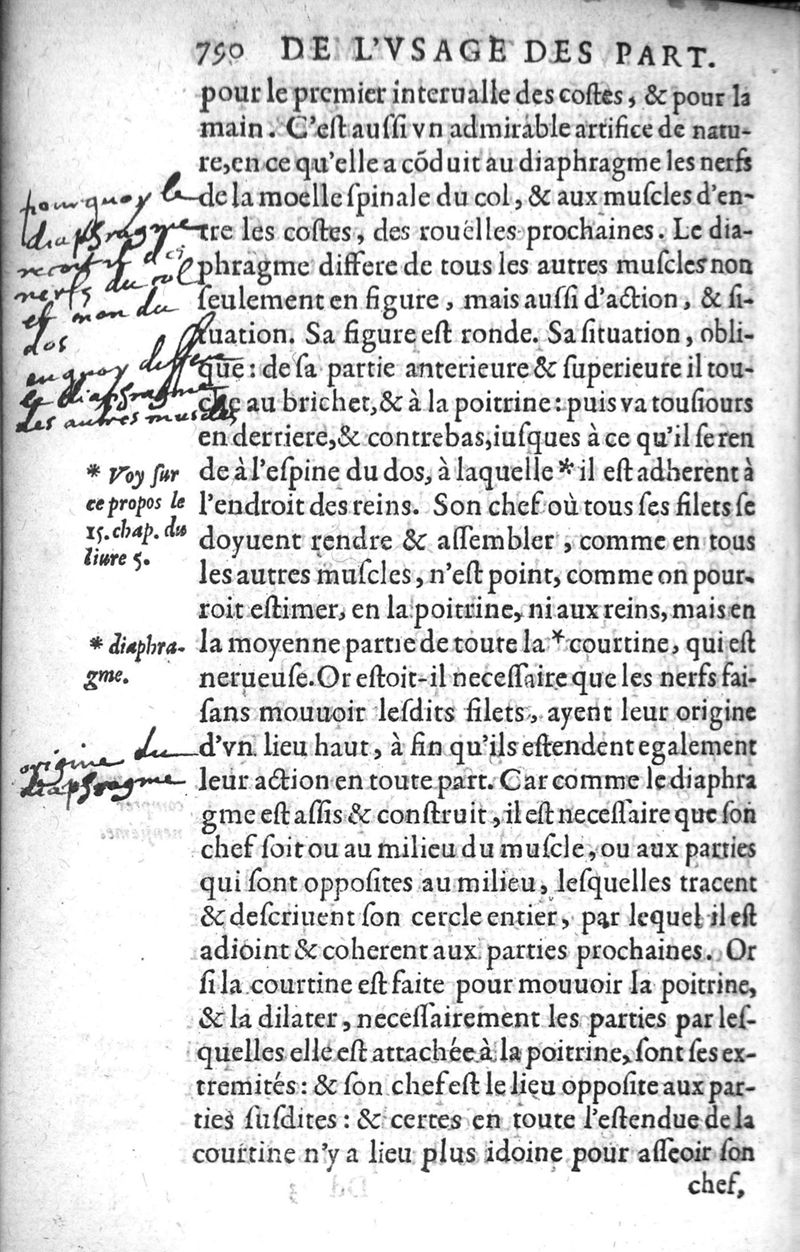 790 DE L'VSAGE DES PART.
pour le premier interualle des costes, & pour la
main. C'est aussi vn admirable artifice de natu-
re, en ce qu'elle a cõduit au diaphragme les nerfs
de la moelle spinale du col, & aux muscles d'en-
tre les costes, des rouëlles prochaines. Le dia-
phragme differe de tous les autres muscles non
seulement en figure, mais aussi d'action, & si-
tuation. Sa figure est ronde. Sa situation, obli-
que: de sa partie anterieure & superieure il tou-
che au brichet, & à la poitrine: puis va tousiours
en derriere, & contrebas, iusques à ce qu'il se ren
de à l'espine du dos, à laquelle * il est adherent à
l'endroit des reins. Son chef où tous ses filets se
doyuent rendre & assembler, comme en tous
les autres muscles, n'est point, comme on pour-
roit estimer, en la poitrine, ni aux reins, mais en
la moyenne partie de toute la * courtine, qui est
nerueuse. Or estoit-il necessaire que les nerfs fai-
sans mouuoir lesdits filets, ayent leur origine
d'vn lieu haut, à fin qu'ils estendent egalement
leur action en toute part. Car comme le diaphra
gme est assis & construit, il est necessaire que son
chef soit ou au milieu du muscle, ou aux parties
qui sont opposites au milieu, lesquelles tracent
& descriuent son cercle entier, par lequel il est
adioint & coherent aux parties prochaines. Or
si la courtine est faite pour mouuoir la poitrine,
& la dilater, necessairement les parties par les-
quelles elle est attachée à la poitrine, sont ses ex-
tremités: & son chef est le lieu opposite aux par-
ties susdites: & certes en toute l'estendue de la
courtine n'y a lieu plus idoine pour asseoir son
chef,
pourquoy le
diaphragme
recoit des
nerfs du col
et non du
dos
en quoy differe
le diaphragme
des autres muscles
* Voy sur
ce propos le
15. chap. du
liure 5.
* diaphra-
gme.
origine du
diaphragme